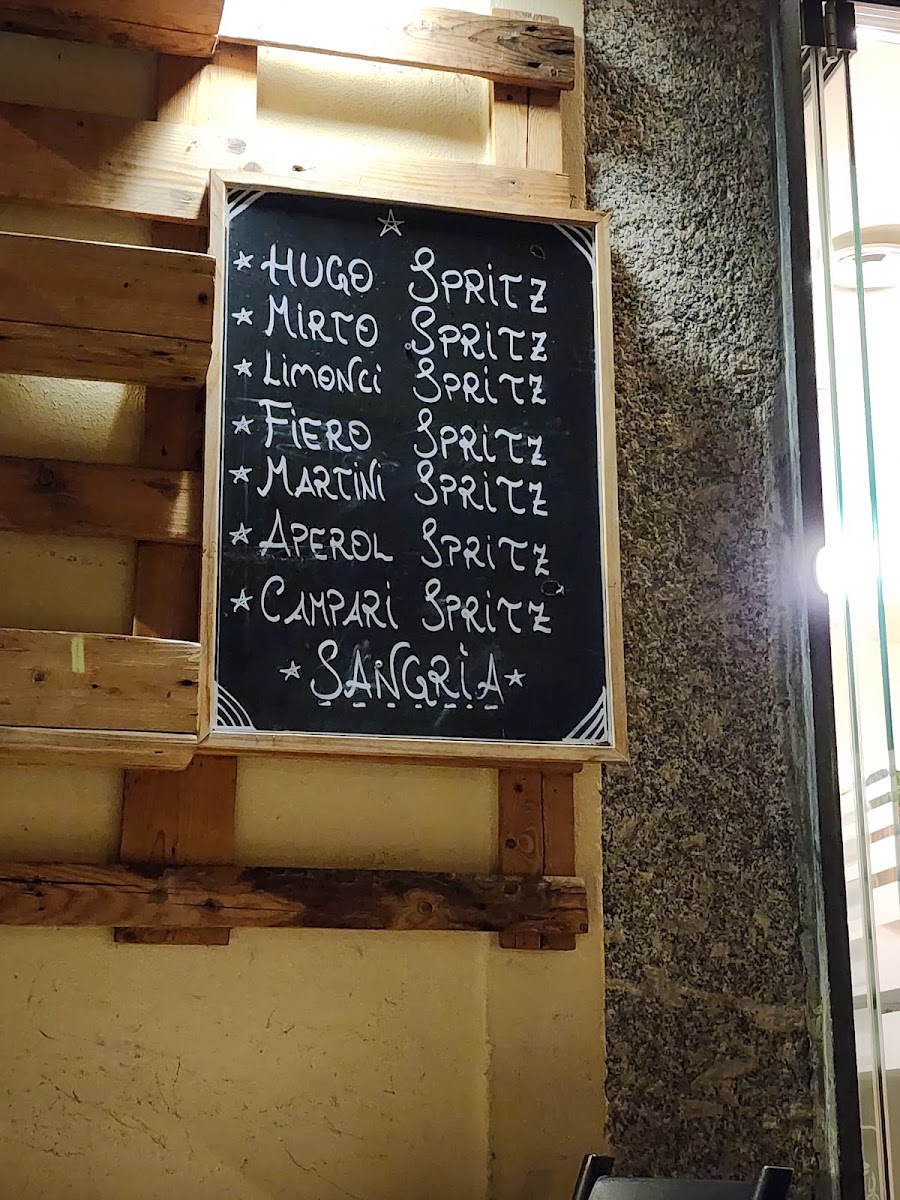 HUGO SPRITZ
MIRTO SPRITZ
LIMONCI SPRITZ
FIERO SPRITZ
MARTINI SPRITZ
APEROL SPRITZ
CAMPARI SPRITZ
SANGRIA